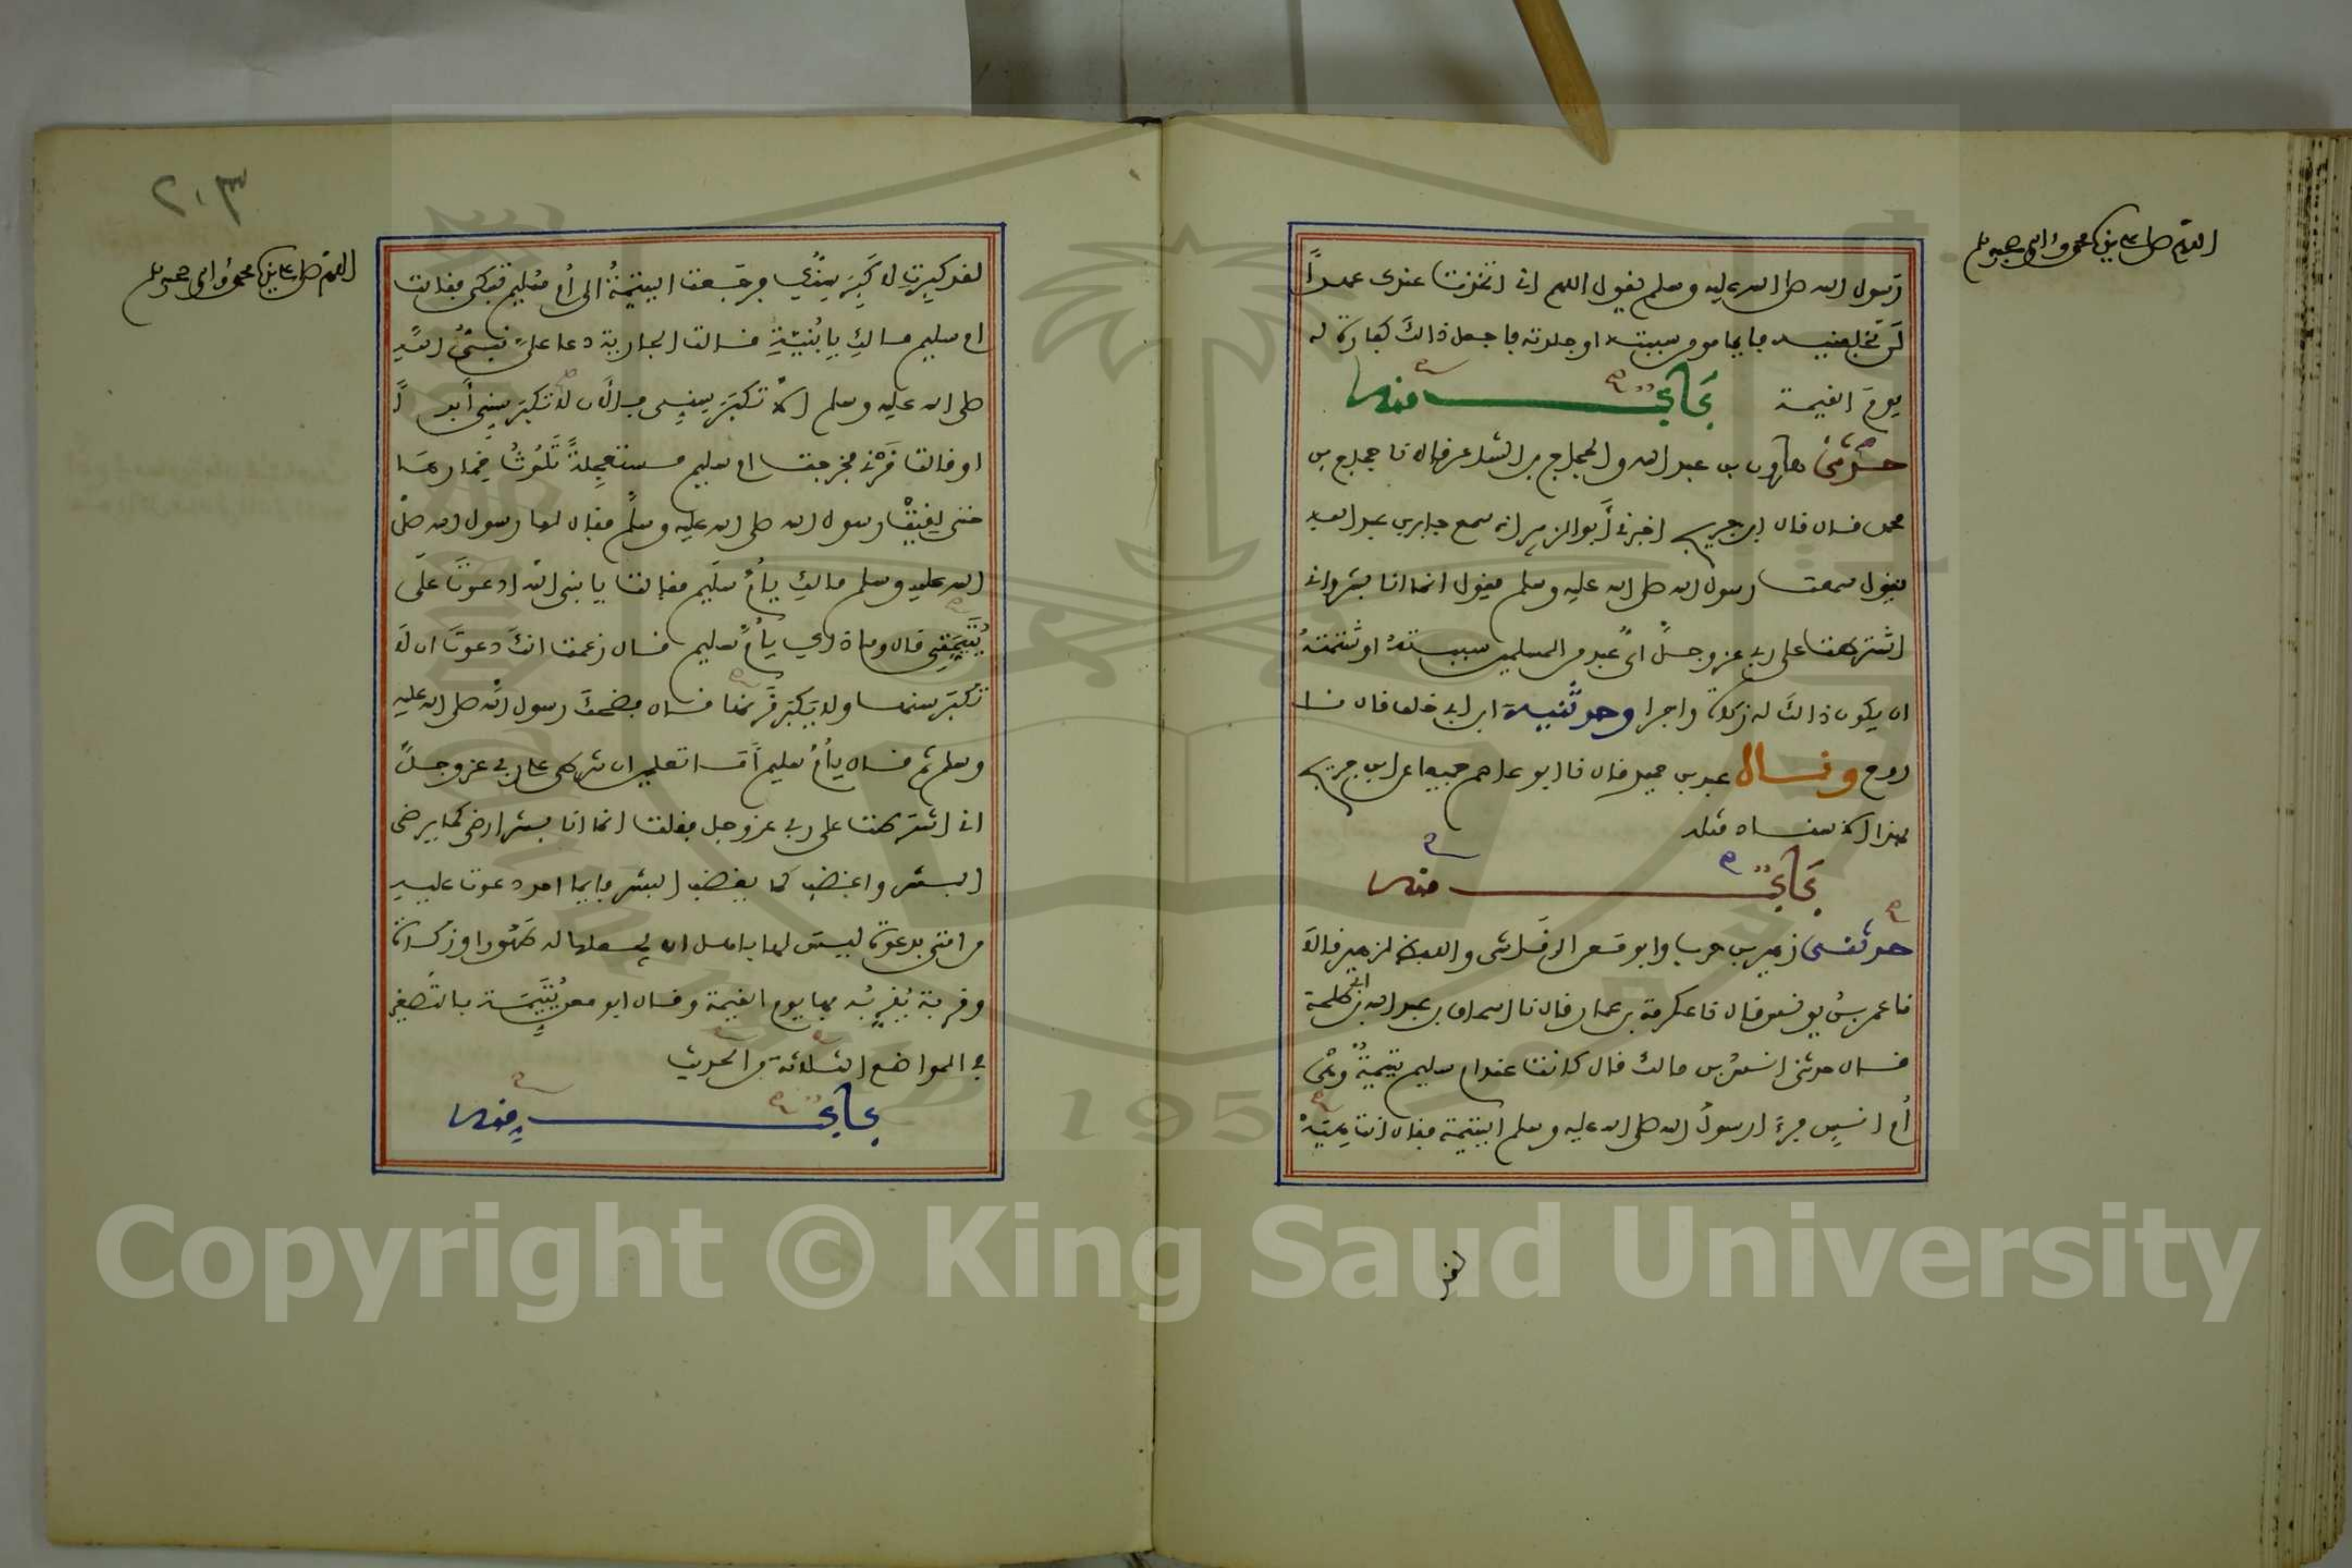 اللهم صل على نبينا محمد وآله وصحبه وسلم
رسول الله صلى الله عليه وسلم يقول اللهم اني اتخذت عندك عهدا
لن تخلفنيه فايما مومن سببته او جلدته فاجعل ذالك كفارة له
يوم القيمة باب منه
حدثني هارون بن عبد الله والحجاج بن الشاعر قالا نا حجاج بن
محمد قال قال ابن جريج اخبرني أبو الزبير انه سمع جابر بن عبد الله
يقول سمعت رسول الله صلى الله عليه وسلم يقول انما انا بشر واني
اشترطت على ربي عز وجل أي عبد من المسلمين سببته او شتمته
ان يكون ذالك له زكاة واجرا وحدثنيه ابن ابي خلف قال نا
روح وقال عبد بن حميد قال نا ابو عاصم جميعا عن ابن جريج
بهذا الاسناد مثله
باب منه
حدثني زهير بن حرب وابو معن الرقاشي واللفظ لزهير قالا
نا عمر بن يونس قال نا عكرمة بن عمار قال نا اسحاق بن عبد الله بن ابي طلحة
قال حدثني انس بن مالك قال كانت عند ام سليم يتيمة وهي
أم انس فرءا رسول الله صلى الله عليه وسلم اليتيمة فقال انت هيه
لقد
٢٠٣
اللهم صل على نبينا محمد وآله وصحبه وسلم
لقد كبرت لا كبر سنك فرجعت اليتيمة الى أم سليم تبكي فقالت
ام سليم مالك يا بنية قالت الجارية دعا علي نبي الله
صلى الله عليه وسلم الا تكبر سني فالآن لا تكبر سني أبدا
او قالت قرني فخرجت ام سليم مستعجلة تلوث خمارها
حتى لقيت رسول الله صلى الله عليه وسلم فقال لها رسول الله صلى
الله عليه وسلم مالك يا أم سليم فقالت يا نبي الله ادعوت على
يتيمتي قال وما ذاك يا أم سليم قال زعمت انك دعوت ان لا
تكبر سنها ولا يكبر قرنها قال فضحك رسول الله صلى الله عليه
وسلم ثم قال يا أم سليم أما تعلمين ان شرطي على ربي عز وجل
اني اشترطت على ربي عز وجل فقلت انما انا بشر ارضى كما يرضى
البشر واغضب كما يغضب البشر فايما احد دعوت عليه
من امتي بدعوة ليس لها باهل ان يجعلها له طهورا وزكاة
وقربة يقربه بها يوم القيمة وقال ابو معن يتيمة بالتصغير
في المواضع الثلاثة من الحديث
باب منه
Copyright © King Saud University
1957